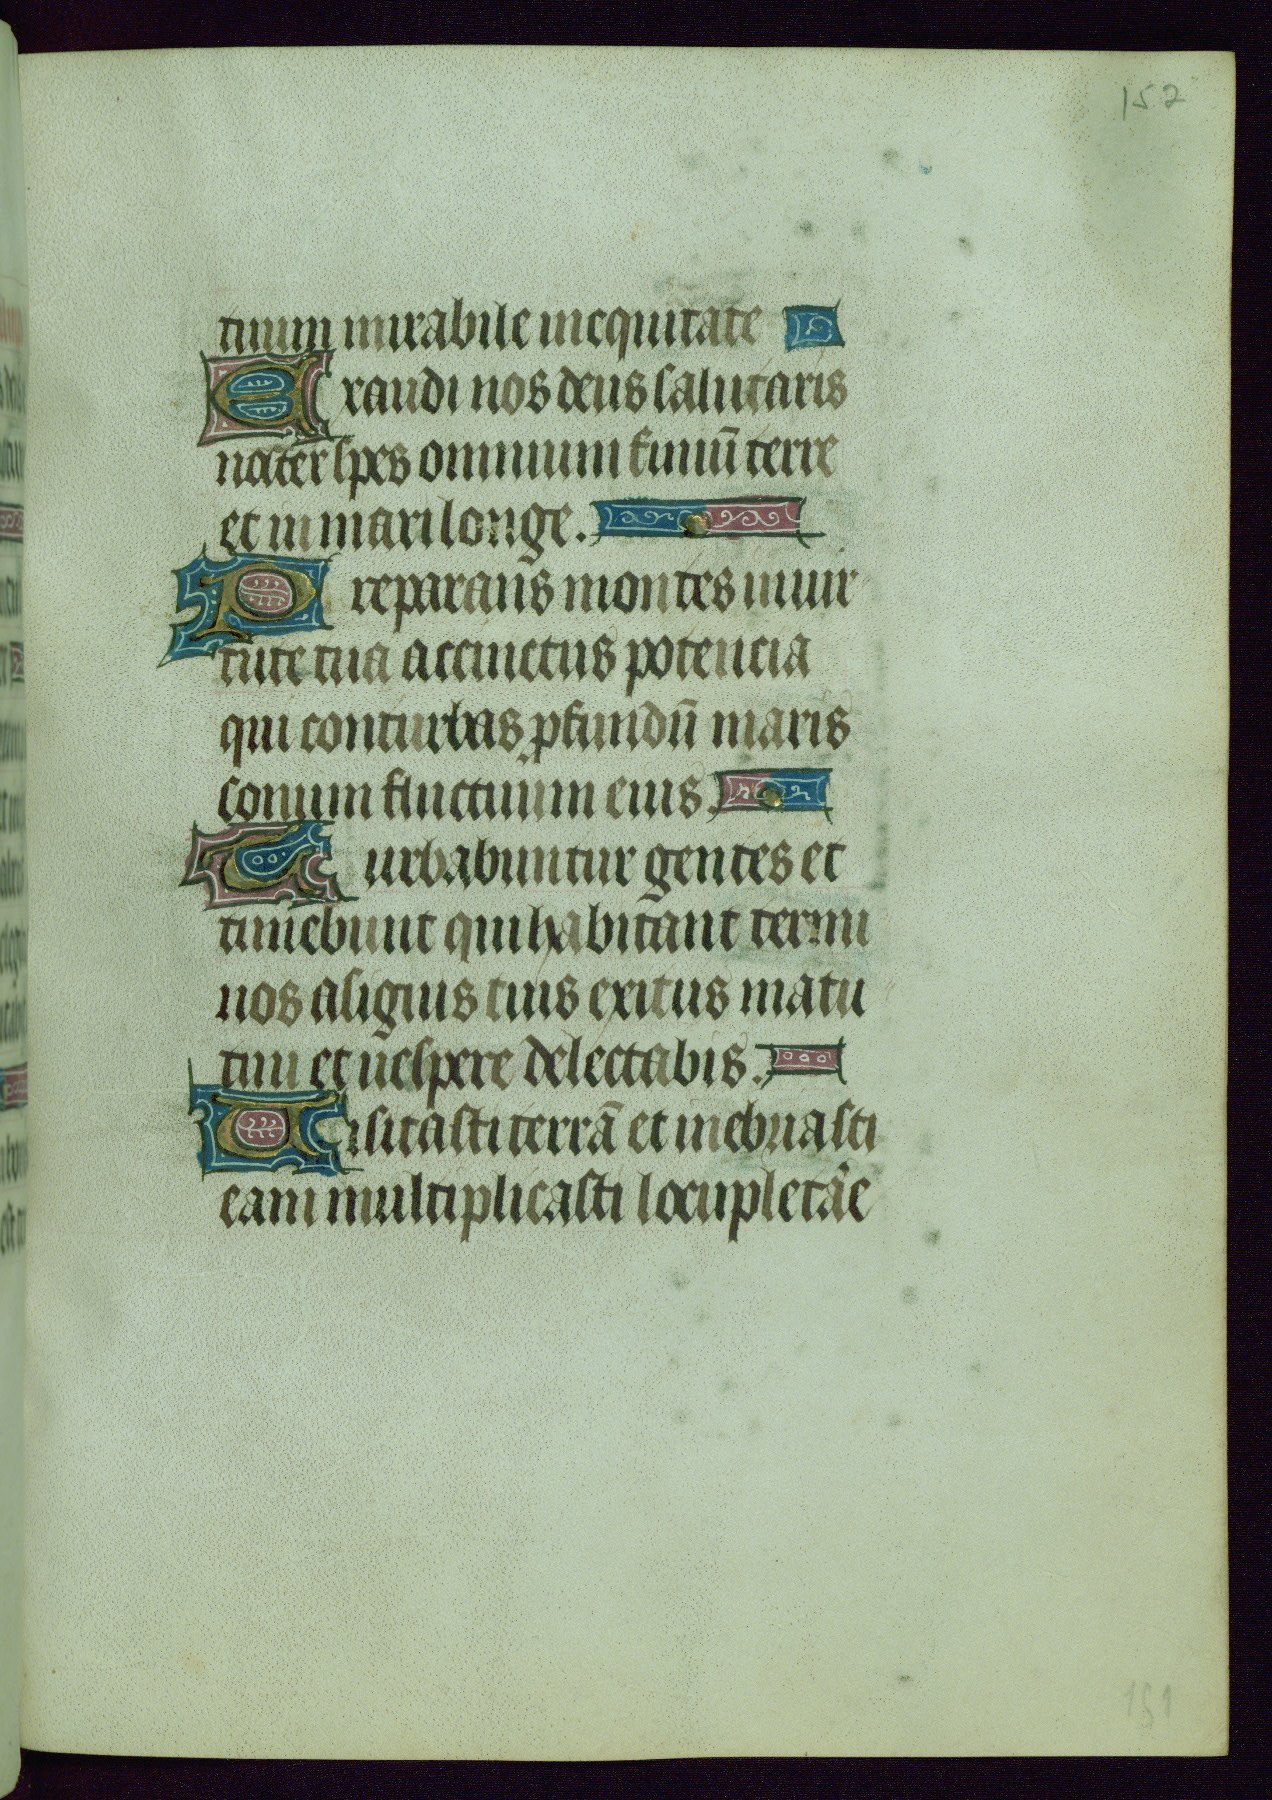 152
tuum mirabile inequitate
Exaudi nos deus salutaris
noster spes omnium finiū terre
et in mari longe.
Preparans montes in uir
tute tua accinctus potencia
qui conturbas ꝓfundū maris
sonum fluctuum eius.
Turbabuntur gentes et
timebunt qui habitant termi
nos a signis tuis exitus matu
tini et uespere delectabis.
Uisitasti terrā et inebriasti
eam multiplicasti locupletāe
151